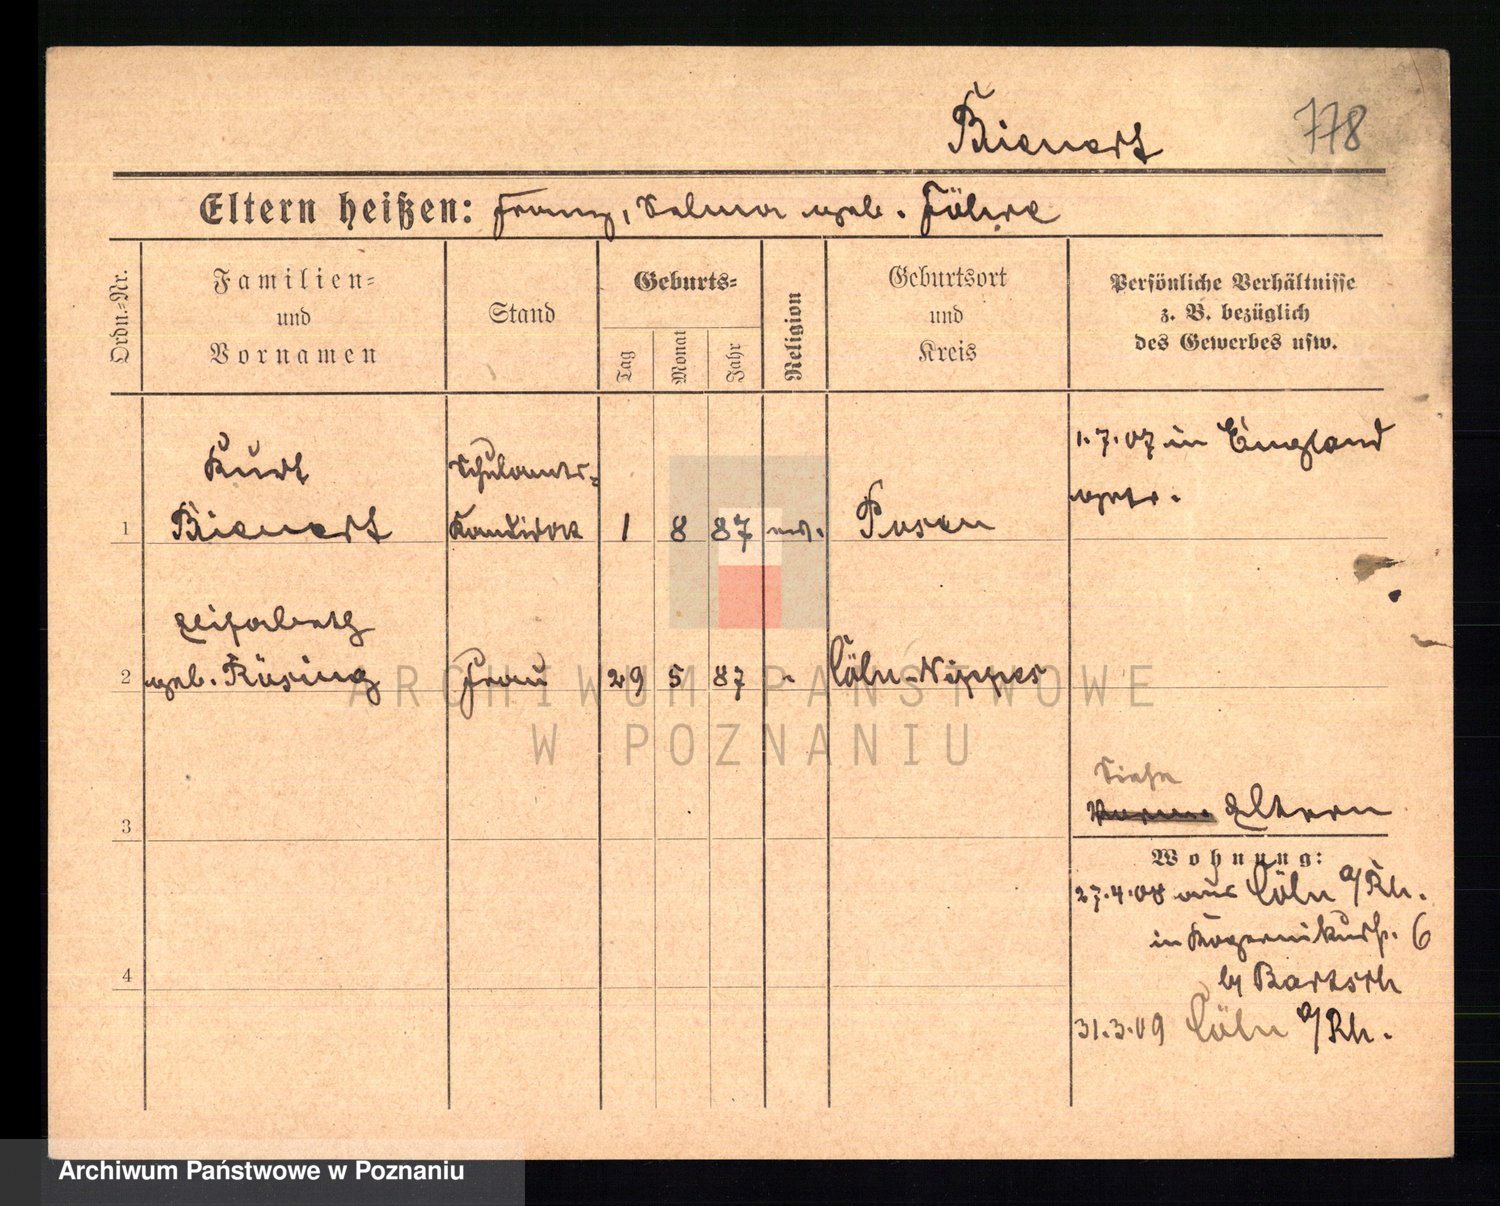 Bienert
778
Eltern heißen: Franz, Selma geb. Föhre
Ordn.=Nr.
Familien=
und
Vornamen
Stand
Geburts=
Tag
Monat
Jahr
Religion
Geburtsort
und
Kreis
Persönliche Verhältnisse
z. B. bezüglich
des Gewerbes usw.
1
Kurt
Bienert
Schulamts=
Kandidat
1 8 87 ev.
Posen
1.7.07 in England
getr.
2
Elisabeth
geb. Rüsing
Frau
29 5 87 "
Cöln-Nippes
3
Siehe
Eltern
Wohnung:
4
27.4.08 aus Cöln a/Rh.
in 6
by Bartsch
31.3.09 Cöln a/Rh.
ARCHIWUM PAŃSTWOWE
W POZNANIU
Archiwum Państwowe w Poznaniu